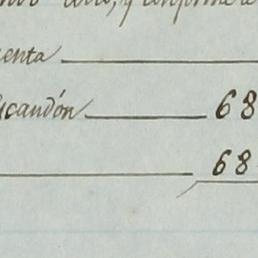 y conforme
enta
scandón 68
68